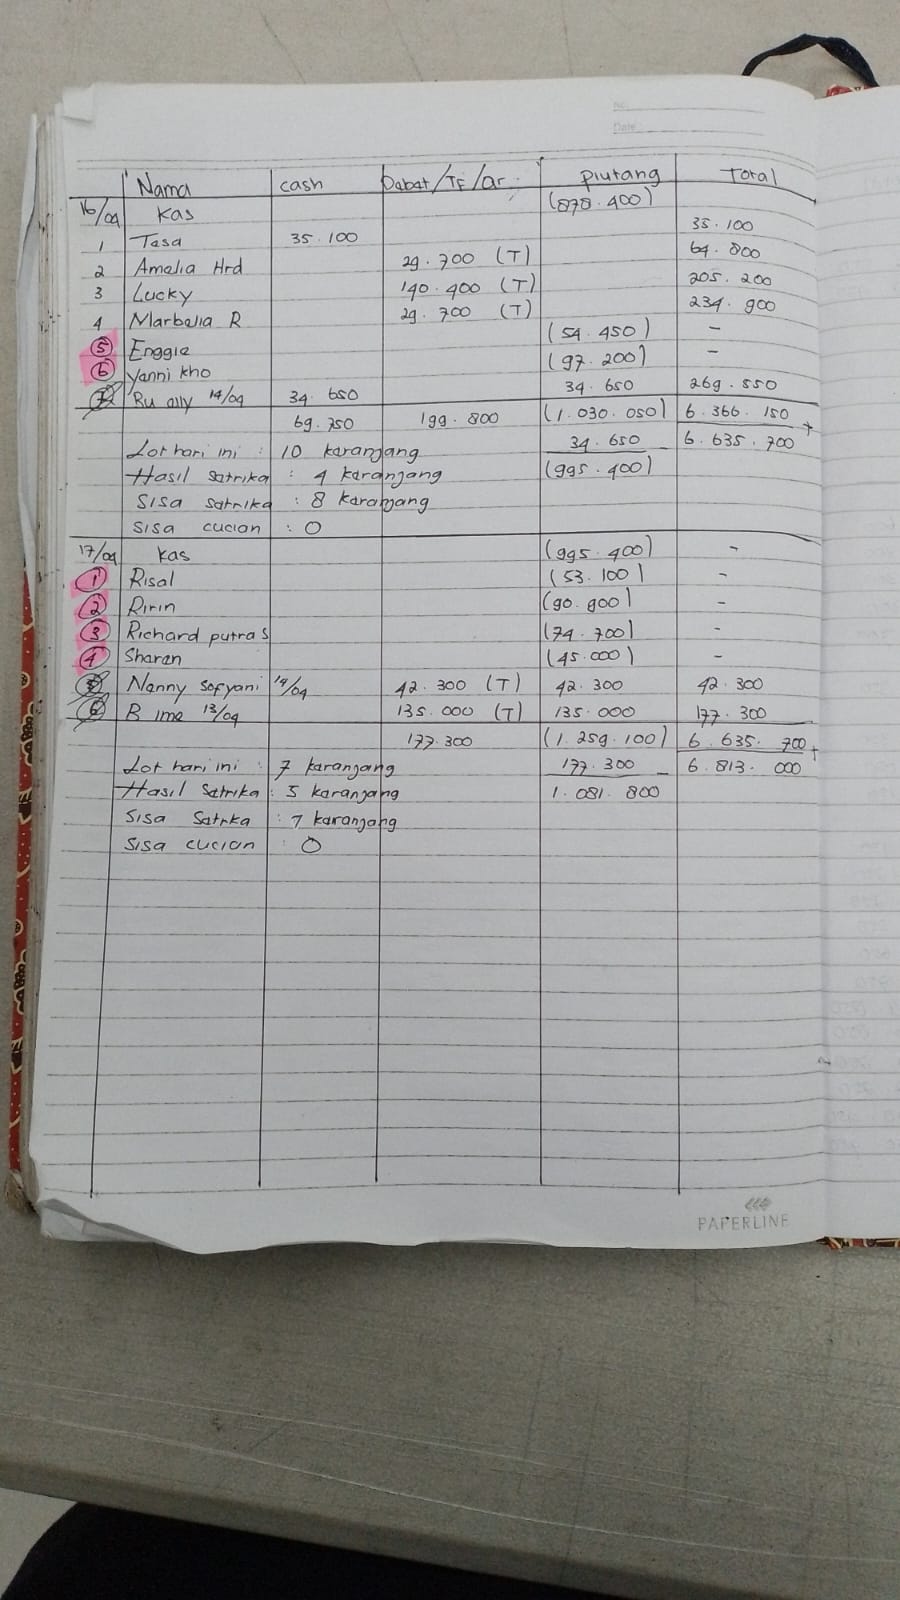 No.
Date
Nama cash Dabat/TF/Qr. piutang Total
16/09 Kas (878.400)
1 Tasa 35.100 35.100
2 Amelia Hrd 29.700 (T) 64.800
3 Lucky 140.400 (T) 205.200
4 Marbelia R 29.700 (T) 234.900
5 Enggie (54.450) -
6 Yanni kho (97.200) -
7 Bu ally 14/09 34.650 34.650 269.550
69.750 199.800 (1.030.050) 6.366.150 +
Lot hari ini : 10 karanjang 34.650 6.635.700
Hasil Satrika : 4 karanjang (995.400)
Sisa satrika : 8 karanjang
Sisa cucian : 0
17/09 Kas (995.400) -
1 Risal (53.100) -
2 Ririn (90.900) -
3 Richard putra S (74.700) -
4 Sharen (45.000) -
5 Nanny Sofyani 14/09 42.300 (T) 42.300 42.300
6 B ime 13/09 135.000 (T) 135.000 177.300
177.300 (1.259.100) 6.635.700 +
Lot hari ini : 7 karanjang 177.300 - 6.813.000
Hasil Satrika : 5 karanjang 1.081.800
Sisa Satrka : 7 karanjang
Sisa cucian : 0
PAPERLINE